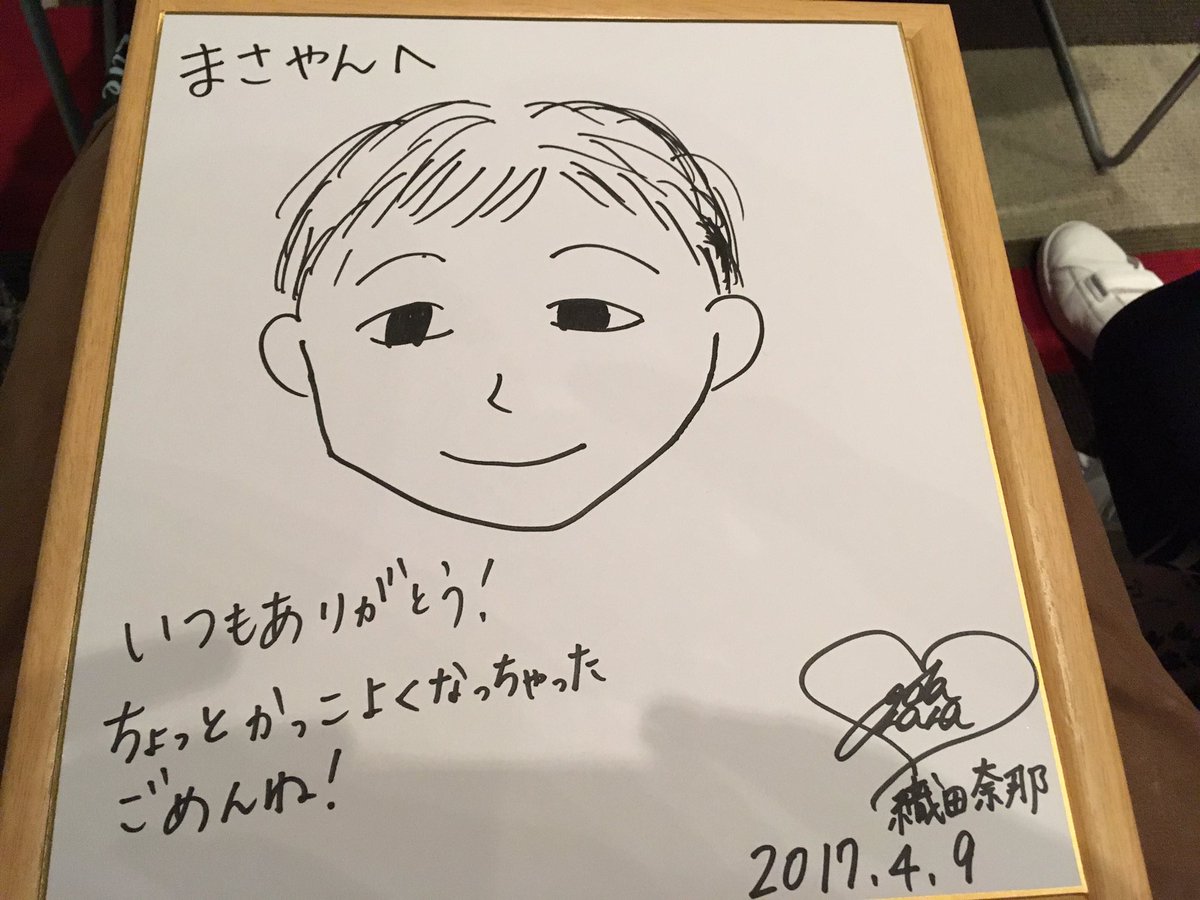 まさやんへ
いつもありがとう!
ちょっとかっこよくなっちゃった
ごめんね!
織田奈那
2017.4.9